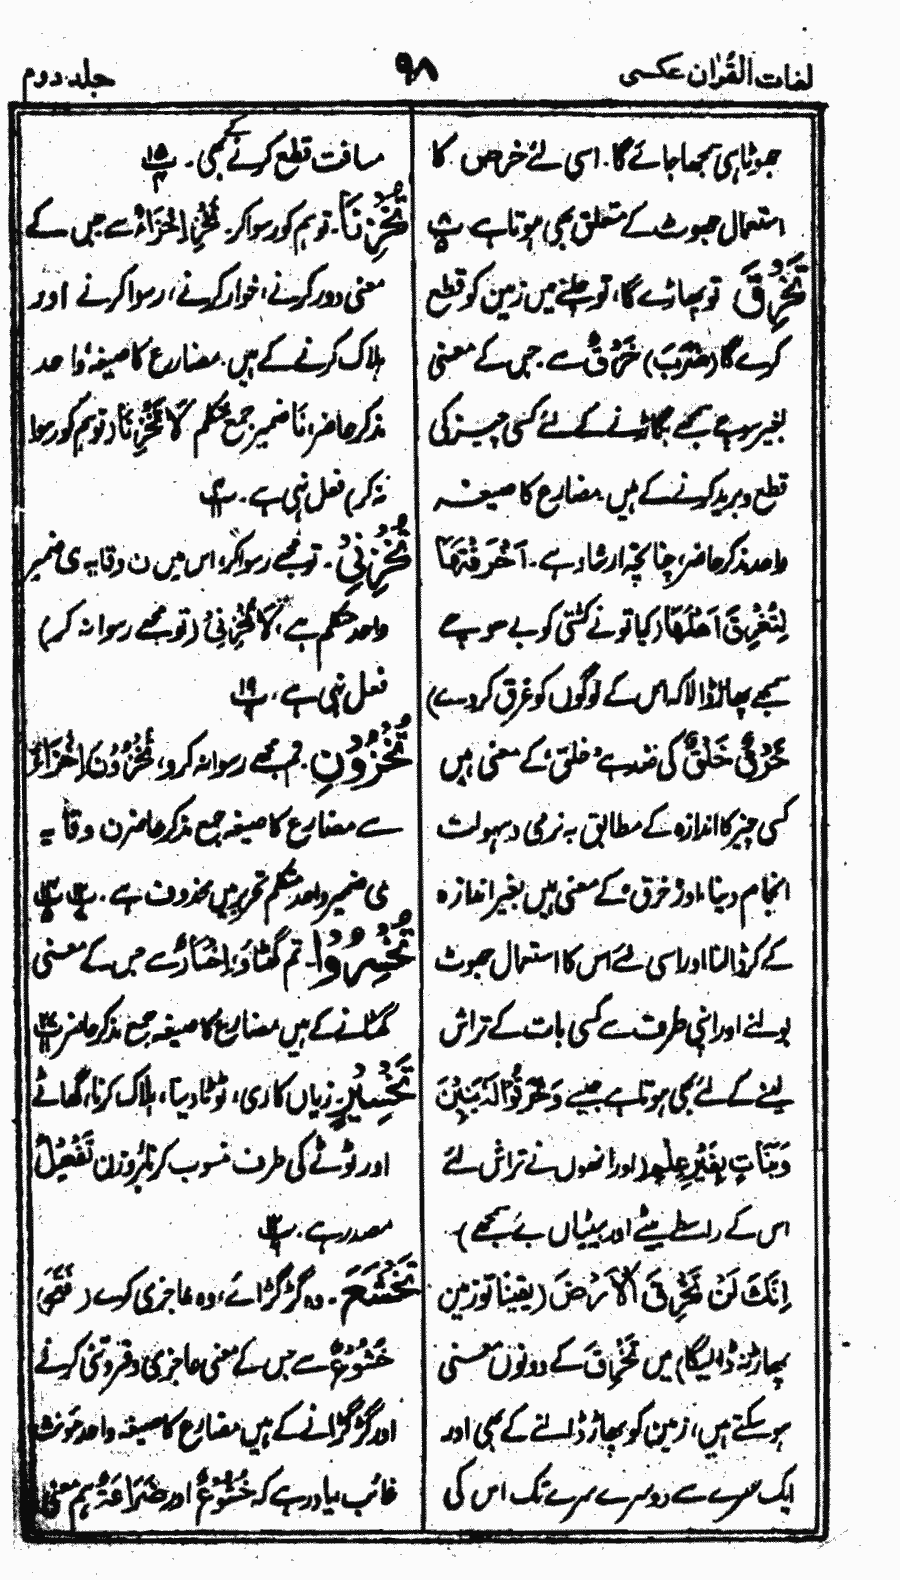 لغات القرآن عکسی
۹۸
جلد دوم
جھوٹا ہی سمجھا جائے گا۔ اسی لئے خرص کا
استعمال جھوٹ کے متعلق بھی ہوتا ہے ۸ پ ۵
تَخْرِقَ تو پھاڑے گا، تو چلنے میں زمین کو قطع
کرے گا (ضَرَبَ) خَرْقٌ سے۔ جس کے معنی
بغیر سوچے سمجھے بگاڑنے کے لئے کسی چیز کی
قطع و برید کرنے کے ہیں۔ مضارع کا صیغہ
واحد مذکر حاضر، چنانچہ ارشاد ہے۔ اَخَرَقْتَهَا
لِتُغْرِقَ اَهْلَهَا (کیا تو نے کشتی کو بے سوچے
سمجھے پھاڑ ڈالا کہ اس کے لوگوں کو غرق کر دے)
خَرْقٌ خَلْقٌ کی ضد ہے خلق کے معنی ہیں
کسی چیز کا اندازہ کے مطابق بہ نرمی و سہولت
انجام دینا، اور خرق کے معنی ہیں بغیر اندازہ
کے کر ڈالنا اور اسی لئے اس کا استعمال جھوٹ
بولنے اور اپنی طرف سے کسی بات کے تراش
لینے کے لئے بھی ہوتا ہے جیسے وَخَرَقُوْا لَهٗ بَنِيْنَ
وَبَنَاتٍ بِغَيْرِ عِلْمٍ (اور انھوں نے تراش لئے
اس کے واسطے بیٹے اور بیٹیاں بے سمجھے)۔
اِنَّكَ لَنْ تَخْرِقَ الْاَرْضَ (یقینا تو زمین
پھاڑ نہ ڈالیگا) میں تَخْرِقَ کے دونوں معنی
ہو سکتے ہیں، زمین کو پھاڑ ڈالنے کے بھی اور
ایک سرے سے دوسرے سرے تک اس کی
مسافت قطع کرنے کے بھی۔ ۱۵ پ ۴
تُخْزِنَا۔ تو ہم کو رسوا کر۔ تُخْزِ اِخْزَاءٌ سے جس کے
معنی دور کرنے، خوار کرنے، رسوا کرنے اور
ہلاک کرنے کے ہیں۔ مضارع کا صیغہ واحد
مذکر حاضر، نَا ضمیر جمع متکلم لَا تُخْزِنَا (تو ہم کو رسوا
نہ کر) فعل نہی ہے۔ ۴ پ ۱۱
تُخْزِنِيْ۔ تو مجھے رسوا کر، اس میں ن وقایہ ی ضمیر
واحد متکلم ہے، لَا تُخْزِنِيْ (تو مجھے رسوا نہ کر)
فعل نہی ہے، ۱۹ پ ۹
تُخْزُوْنِ۔ تم مجھے رسوا نہ کرو، تُخْزُوْنَ اِخْزَاءٌ
سے مضارع کا صیغہ جمع مذکر حاضر ن وقایہ
ی ضمیر واحد متکلم تحریر میں محذوف ہے۔
تُخْسِرُوْا۔ تم گھٹاؤ، اِخْسَارٌ سے جس کے معنی
گھٹانے کے ہیں مضارع کا صیغہ جمع مذکر حاضر ۲۷ پ ۱۱
تَخْسِيْرٍ۔ زیاں کاری، ٹوٹا دینا، ہلاک کرنا، گھاٹے
اور ٹوٹے کی طرف منسوب کرنا بر وزن تَفْعِيْلٌ
مصدر ہے۔ ۱۲ پ
تَخْشَعَ۔ وہ گڑگڑائے، وہ عاجزی کرے (فَتَحَ)
خُشُوْعٌ سے جس کے معنی عاجزی و فروتنی کرنے
اور گڑگڑانے کے ہیں مضارع کا صیغہ واحد مؤنث
غائب، یاد رہے کہ خُشُوْعٌ اور ضَرَاعَةٌ ہم معنی